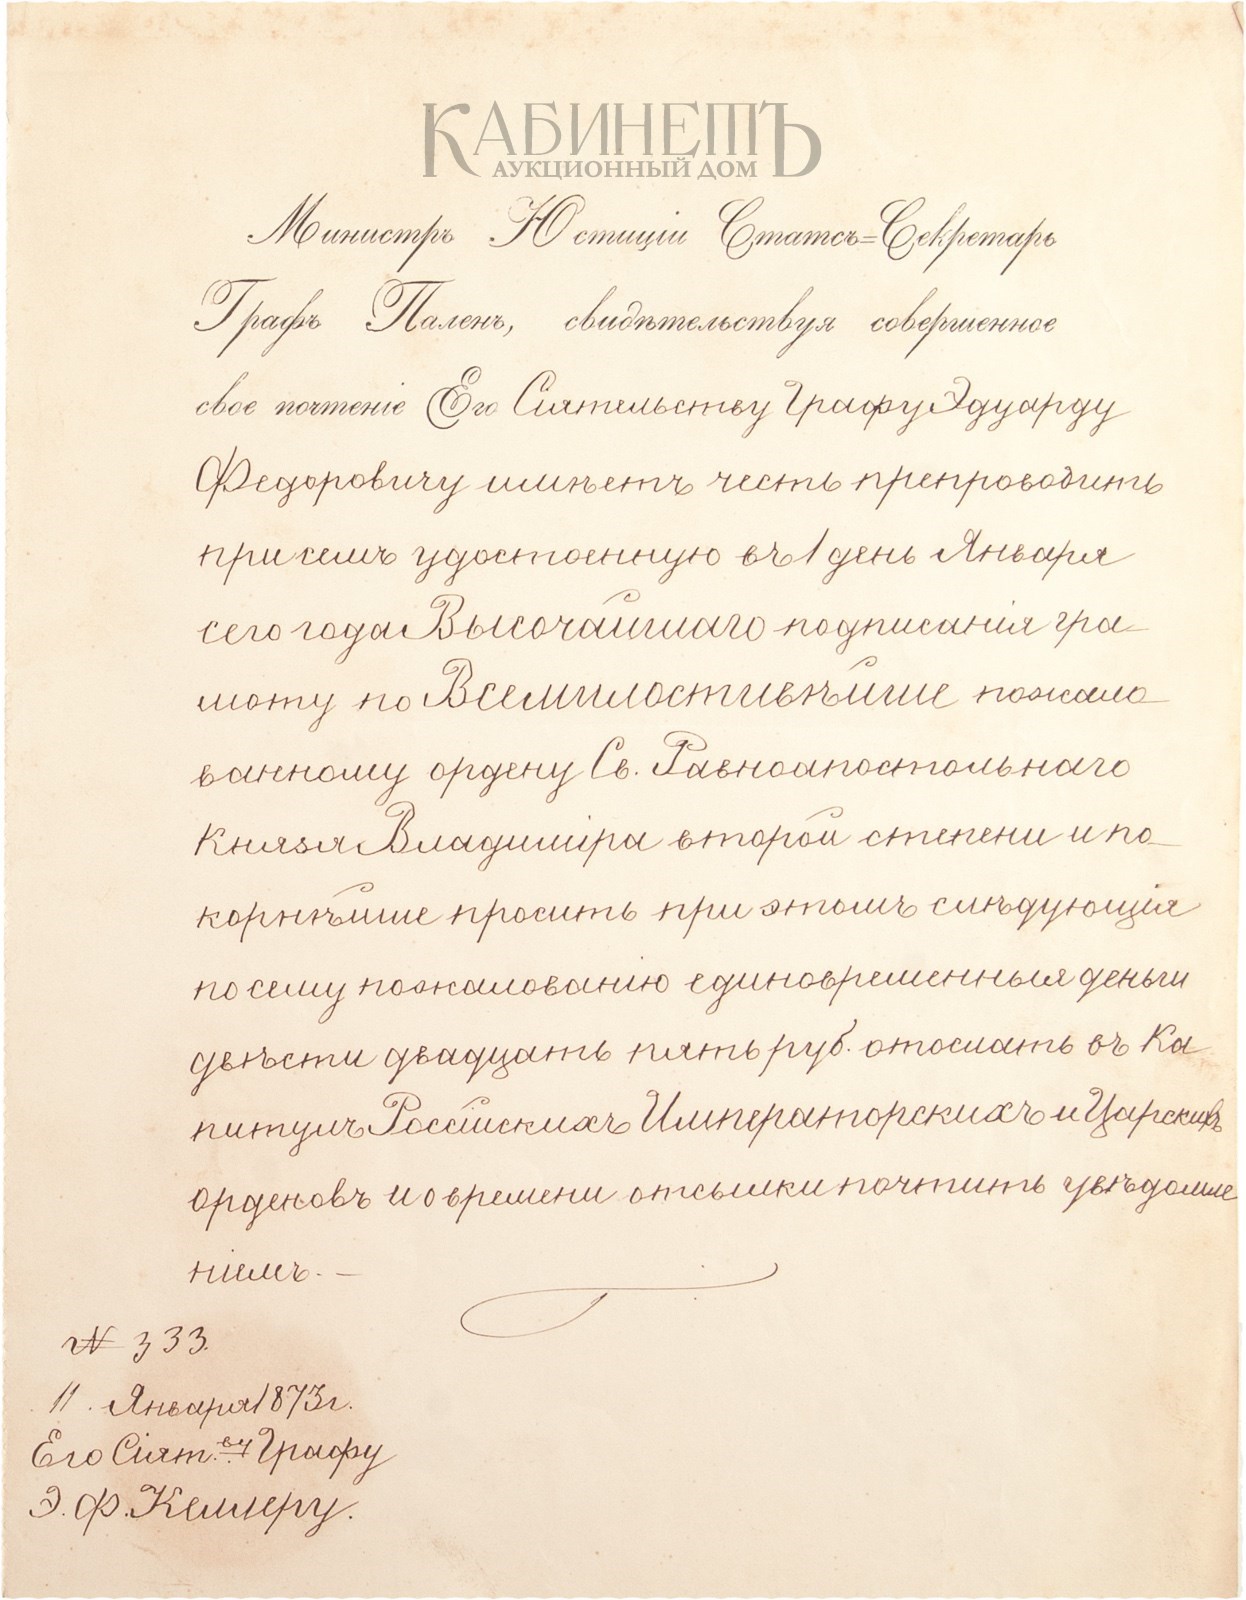 КАБИНЕТЪ
АУКЦИОННЫЙ ДОМ
Министръ Юстиціи Статсъ=Секретарь
Графъ Паленъ, свидѣтельствуя совершенное
свое почтеніе Его Сіятельству Графу Эдуарду
Федоровичу имѣетъ честь препроводить
при семъ удостоенную въ 1 день Января
сего года Высочайшаго подписанія гра-
моту по Всемилостивѣйше пожало-
ванному ордену Св. Равноапостольнаго
Князя Владиміра второй степени и по-
корнѣйше просить при этомъ слѣдующія
по сему пожалованію единовременныя деньги
двѣсти двадцать пять руб. отослать въ Ка
питулъ Россійскихъ Императорскихъ и Царскихъ
орденовъ и о времени отсылки почтить увѣдомле
ніемъ. —
№ 333.
11. Января 1873 г.
Его Сіят.ву Графу
Э. Ф. Келлеру.